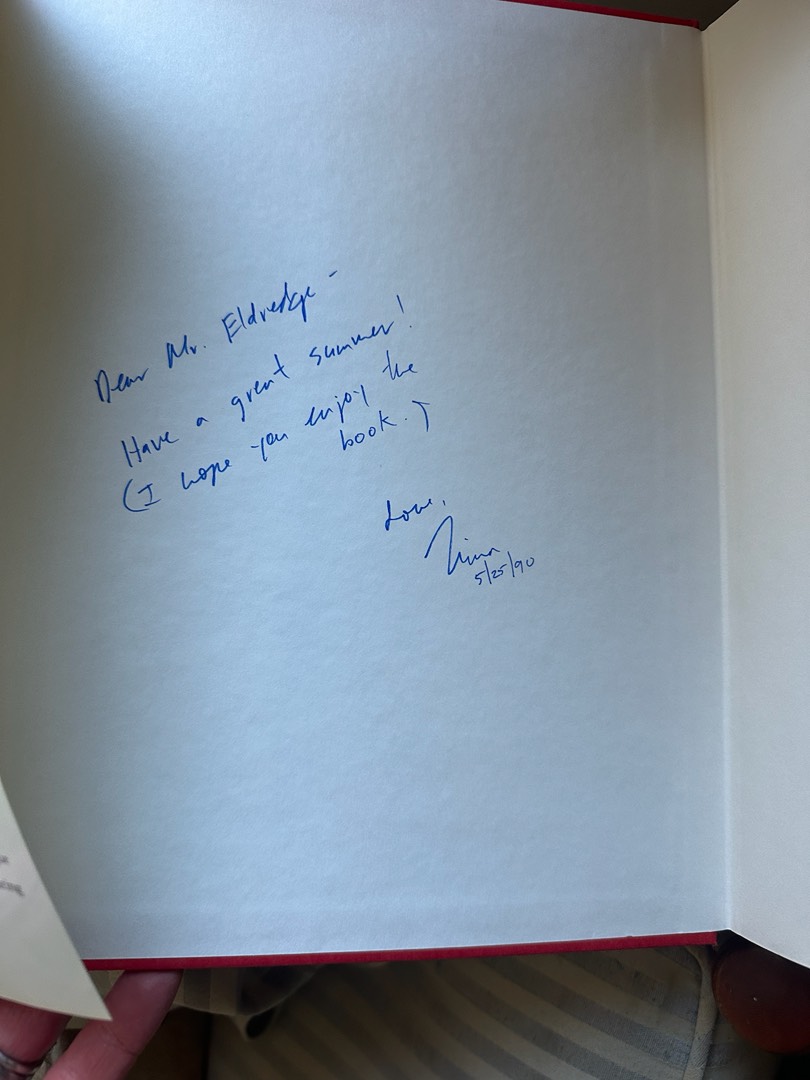 Dear Mr. Eldredge -
Have a great summer!
(I hope you enjoy the
book.)
Love,
Nina
5/25/90